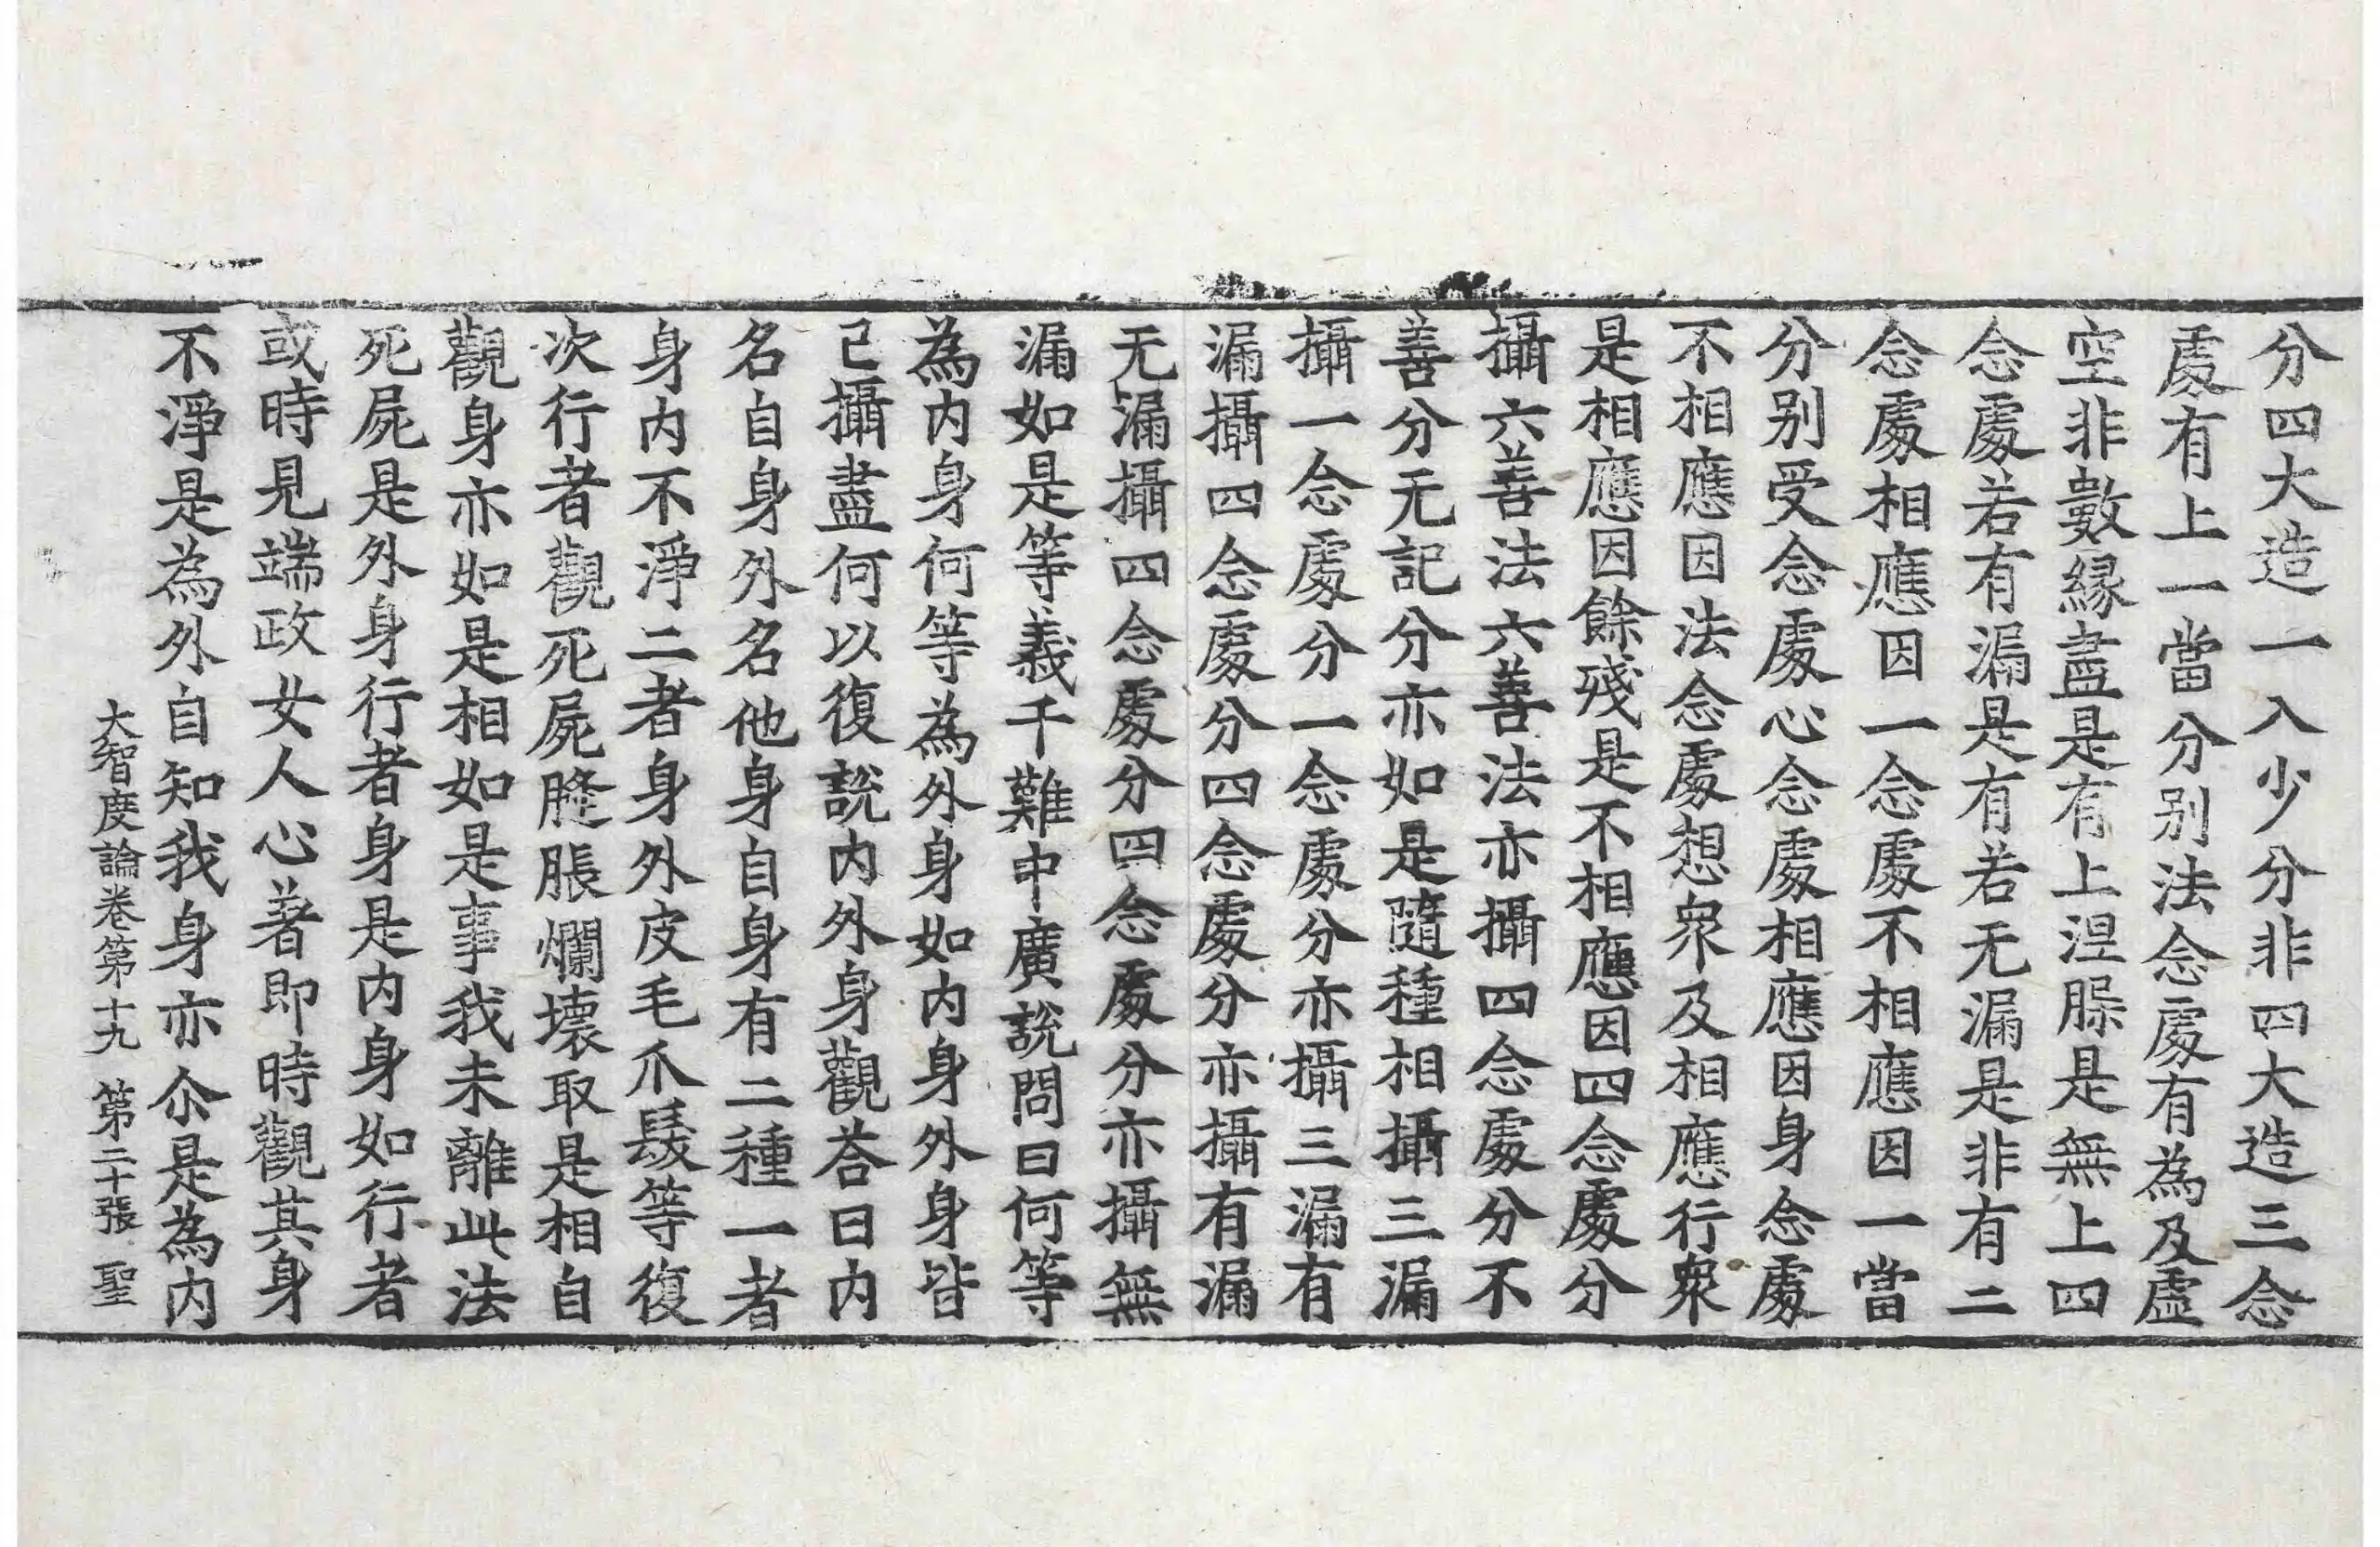 分四大造一入少分非四大造三念
處有上一當分别法念處有為及虛
空非數緣盡是有上涅槃是無上四
念處若有漏是有若无漏是非有二
念處相應因一念處不相應因一當
分别受念處心念處相應因身念處
不相應因法念處想衆及相應行衆
是相應因餘殘是不相應因四念處分
攝六善法六善法亦攝四念處分不
善分无記分亦如是隨種相攝三漏
攝一念處分一念處分亦攝三漏有
漏攝四念處分四念處分亦攝有漏
无漏攝四念處分四念處分亦攝無
漏如是等義千難中廣說問曰何等
為内身何等為外身如内身外身皆
已攝盡何以復說内外身觀荅曰内
名自身外名他身自身有二種一者
身内不淨二者身外皮毛爪髮等復
次行者觀死屍膖脹爛壞取是相自
觀身亦如是相如是事我未離此法
死屍是外身行者身是内身如行者
或時見端政女人心著即時觀其身
不淨是為外自知我身亦尒是為内
大智度論卷第十九 第二十張 聖